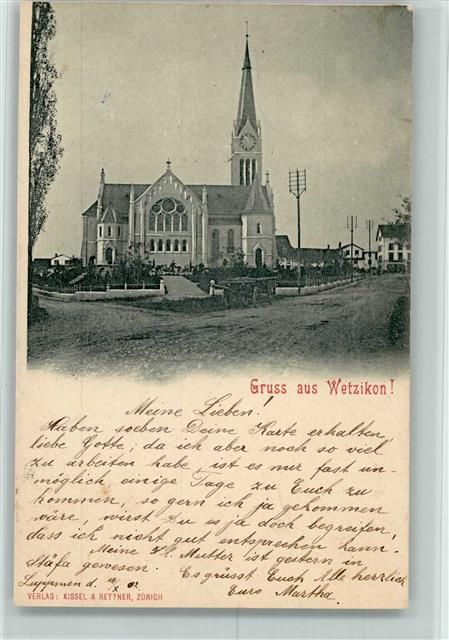 Gruss aus Wetzikon!
Meine Lieben!
Haben soeben Deine Karte erhalten,
liebe Gotte; da ich aber noch so viel
zu arbeiten habe, ist es mir fast un-
möglich, einige Tage zu Euch zu
kommen, so gern ich ja gekommen
wäre, wirst Du es ja doch begreifen,
dass ich nicht gut entsprechen kann.
Meine Mutter ist gestern in
Stäfa gewesen. Es grüsst Euch Alle herzlich
Luppmen d. Eure Martha.
VERLAG: KISSEL & RETTNER, ZÜRICH